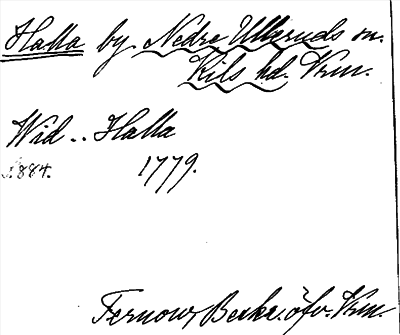 Halla by Nedre Ulleruds sn.
Kils hd. Vrm.
Wid .. Halla
S. 884. 1779.
Fernow, Beskr. öfv. Vrm.